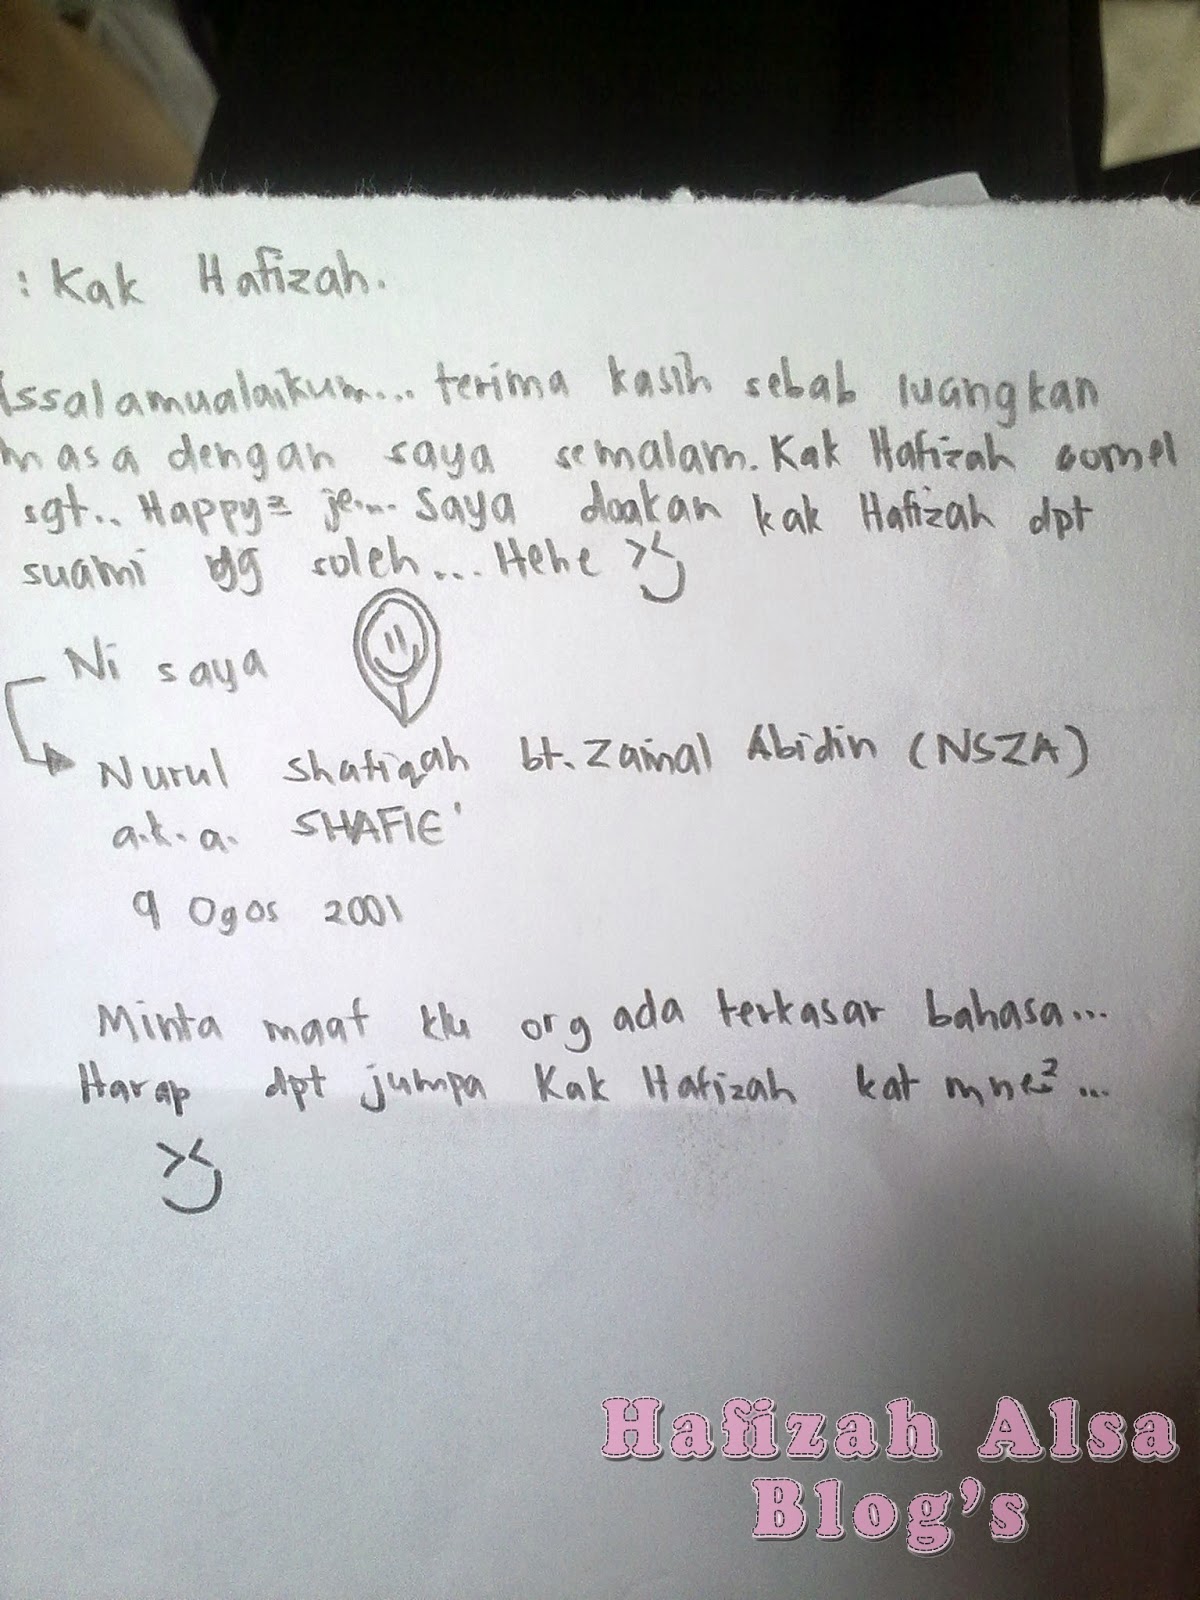 : Kak Hafizah.
Assalamualaikum... terima kasih sebab luangkan
masa dengan saya semalam. Kak Hafizah comel
sgt.. Happy2 je.... Saya doakan kak Hafizah dpt
suami yg soleh... Hehe
Ni saya
Nurul Shafiqah bt. Zainal Abidin (NSZA)
a.k.a. SHAFIE'
9 Ogos 2001
Minta maaf klu org ada terkasar bahasa...
Harap dpt jumpa Kak Hafizah kat mne2...
Hafizah Alsa
Blog's